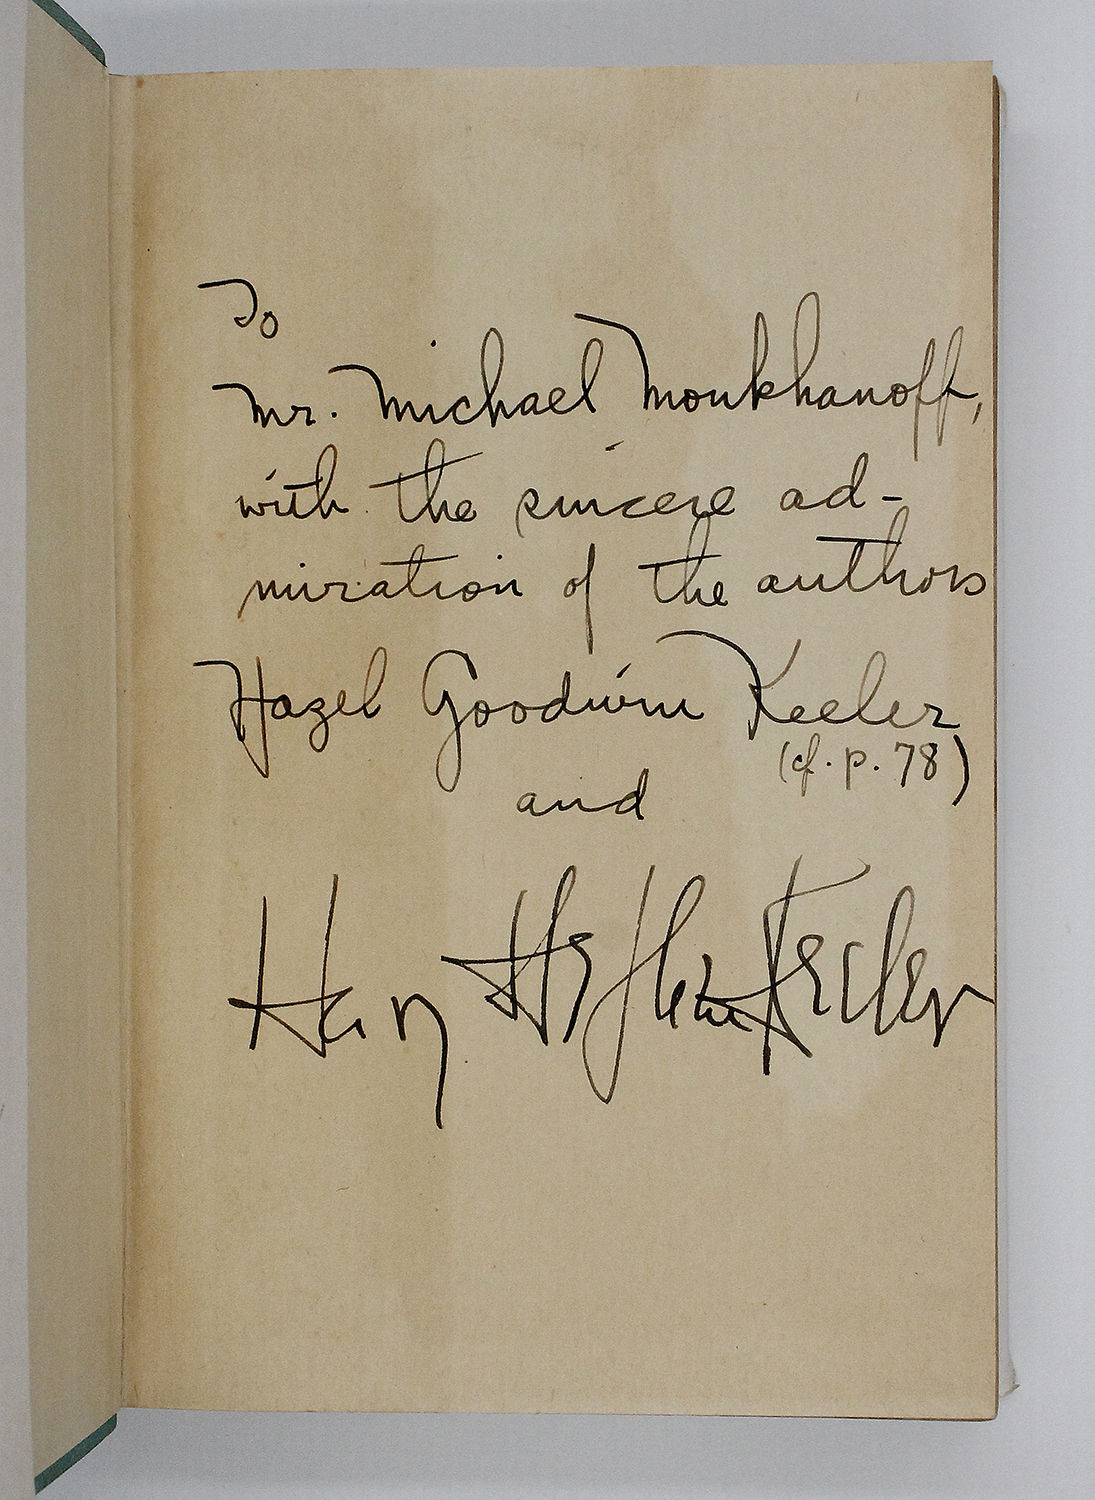 To
Mr. Michael Monkhanoff,
with the sincere ad-
miration of the authors
Hazel Goodwin Keeler
(cf. p. 78)
and
Harry Stephen Keeler